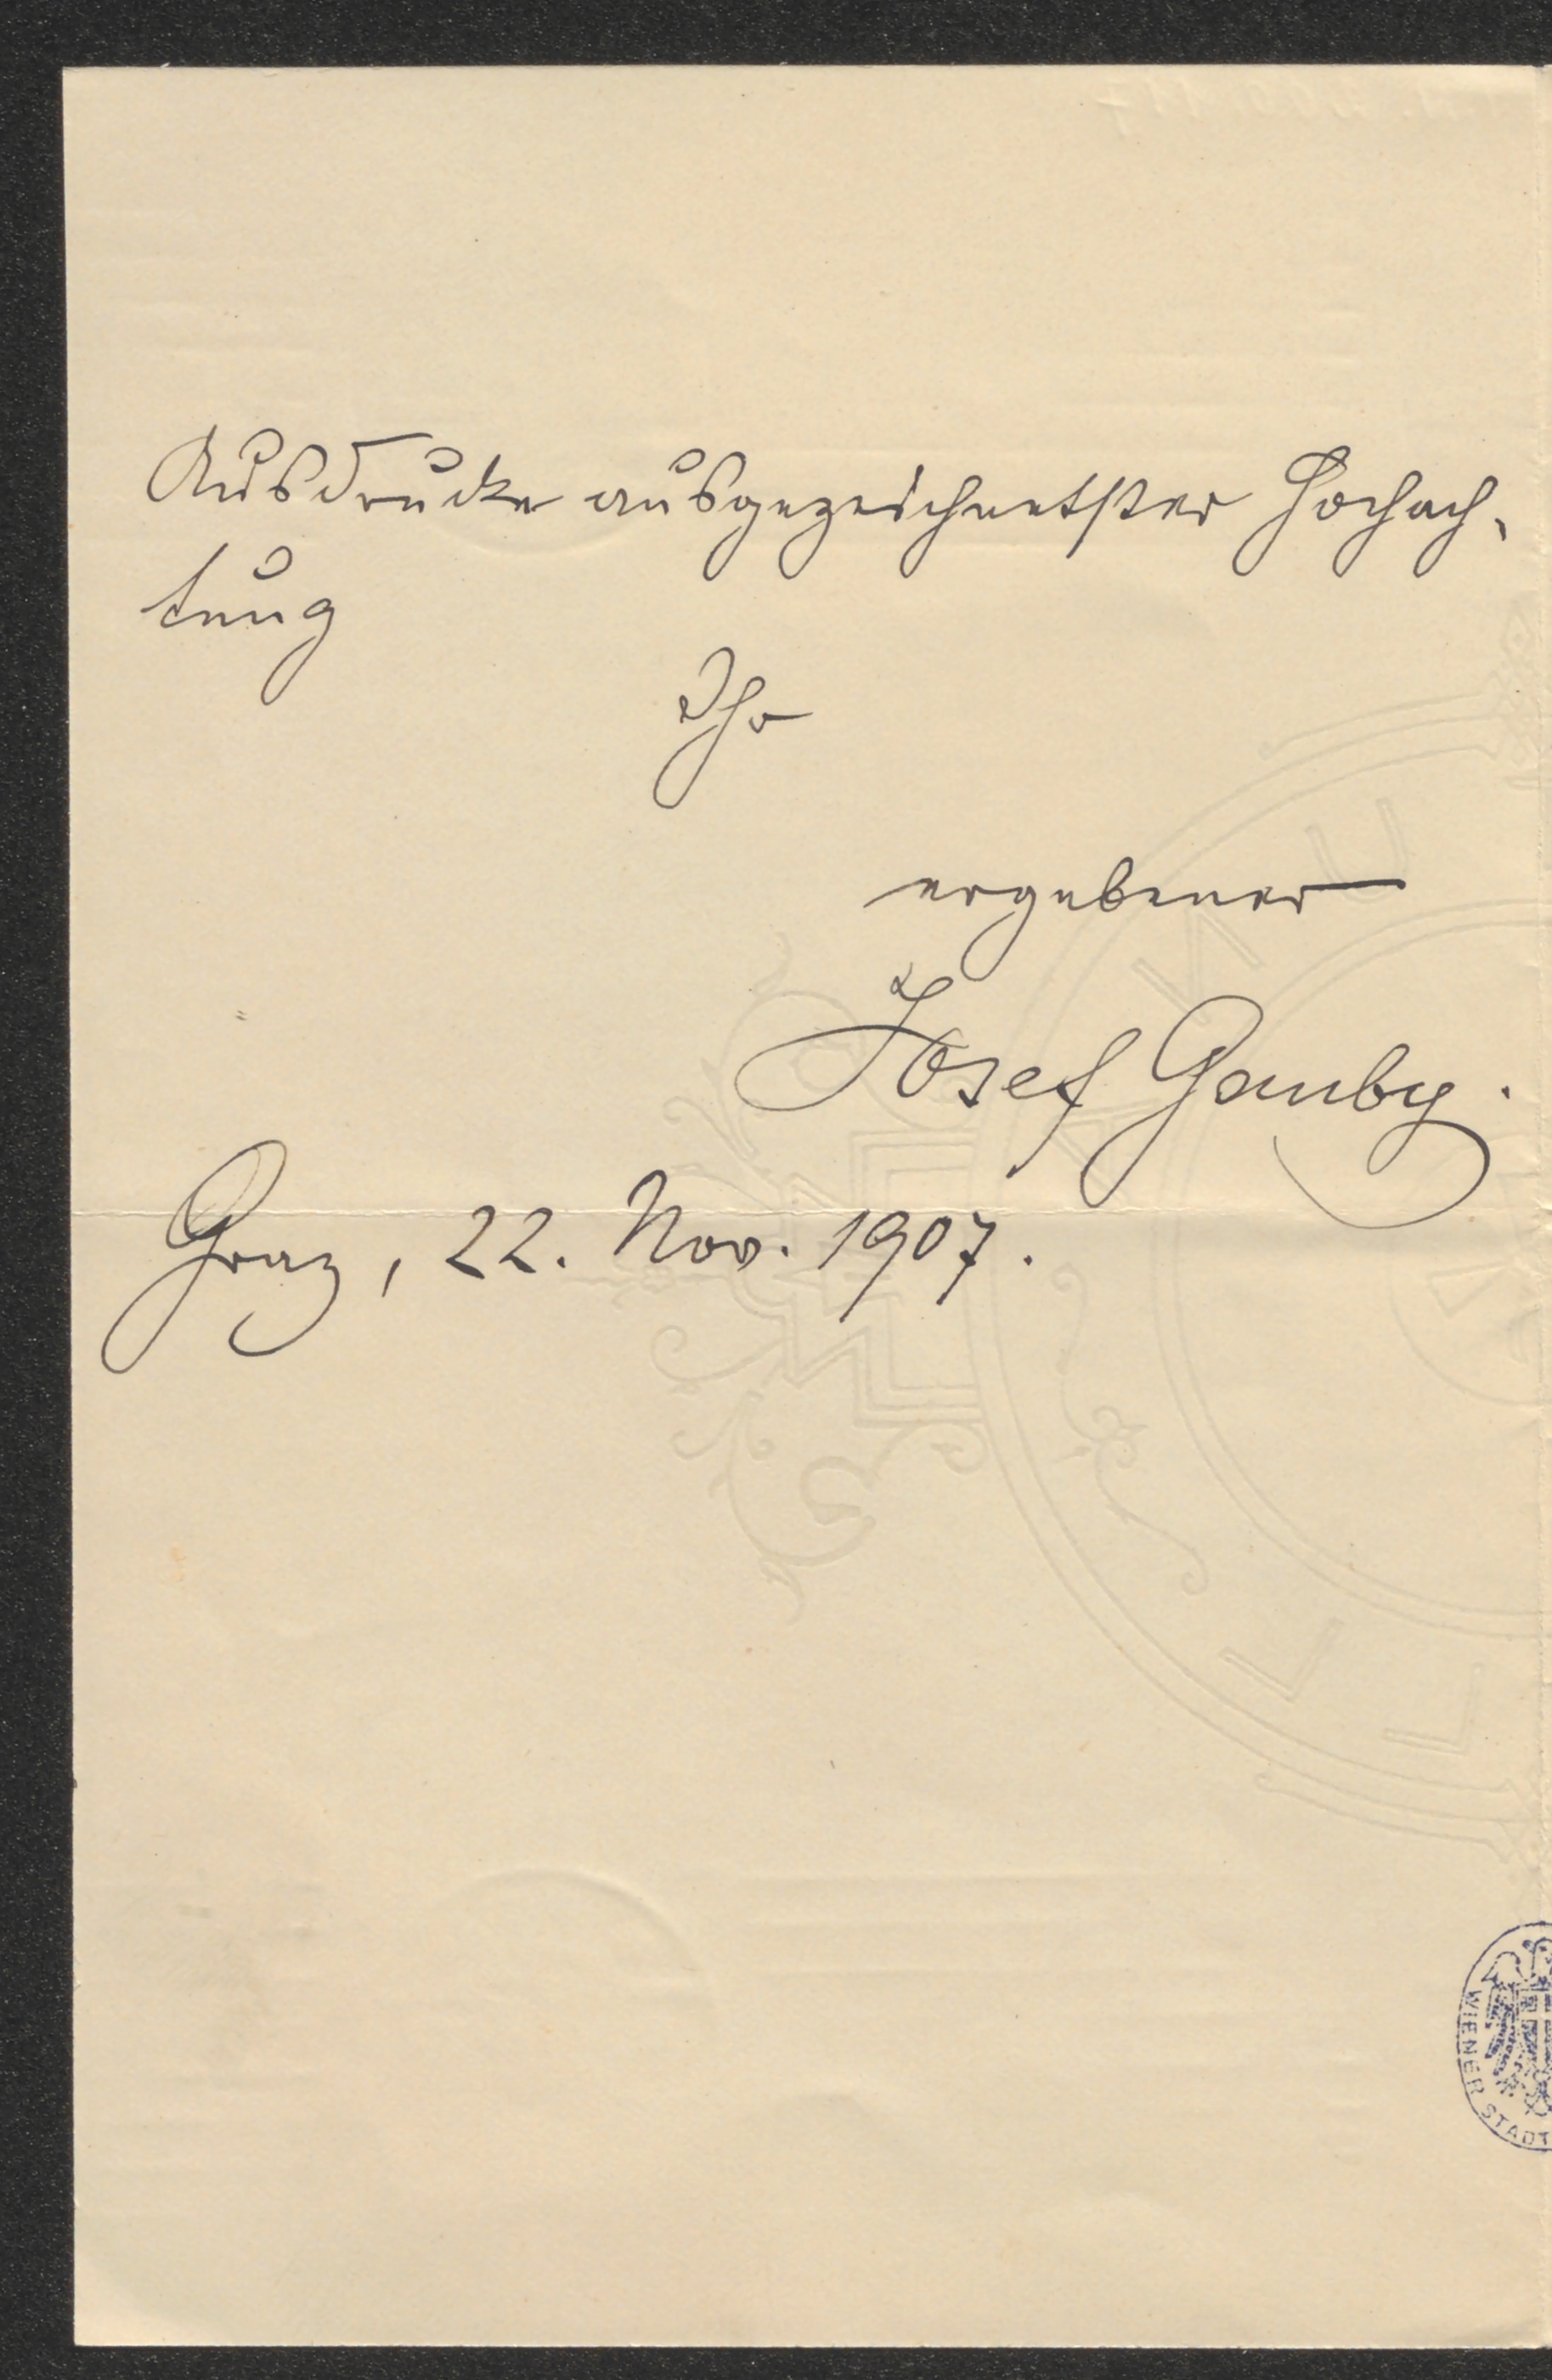 Ausdrucke ausgezeichnetster Hochach-
tung
Ihr
ergebener
Josef Gauby.
Graz, 22. Nov. 1907.
WIENER STADT